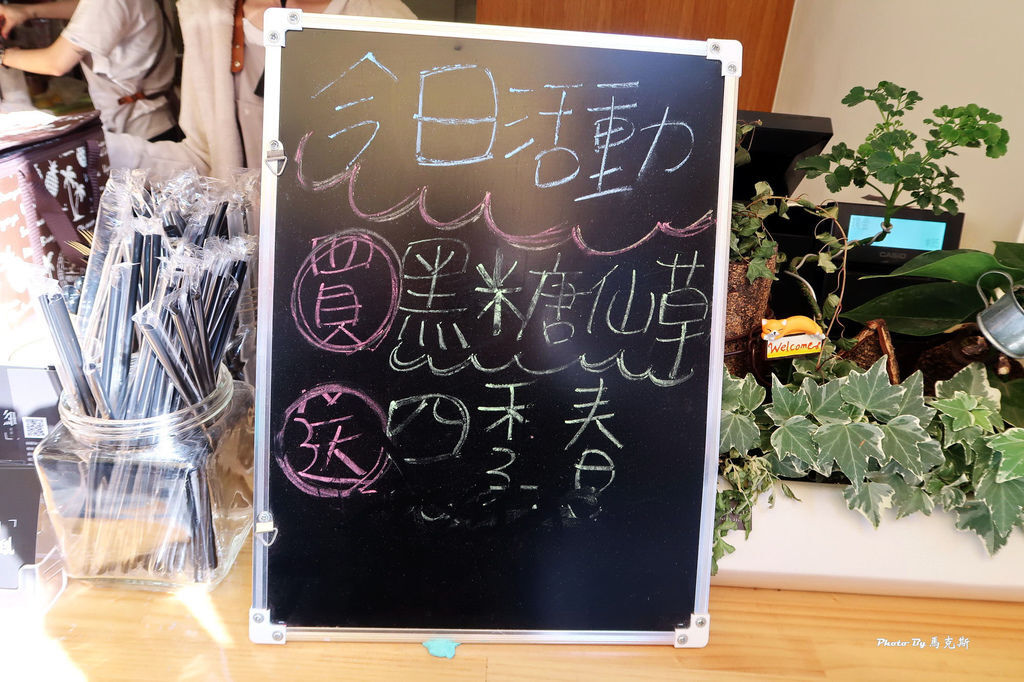 今日活動
買黑糖仙草
送四季春
CASIO
Welcome
Photo By 馬克斯